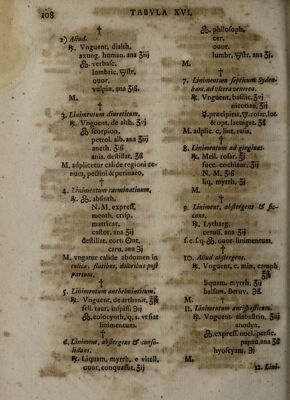 108 TABVLA XVI.
2) Aliud.
℞. Vnguent. dialth.
axung. human. ana ʒiij
verbasc.
lumbric. ꝟstr.
ouor.
vulpin. ana ʒiß.
M.
†
3. Linimentum diureticum.
℞. Vnguent. de alth. ʒvj
scorpion.
petrol. alb. ana ʒiij
aneth. ʒiß
anis. destillat. ʒß
M. adplicetur calide regioni re-
num, pectini & perinaeo.
†
4. Linimentum carminatiuum,
℞. absinth.
N. M. express.
menth. crisp.
matricar.
castor. ana ʒij
destillat. cort. Ont.
caru. ana ʒj
M. vngatur calide abdomen in
colica, flatibus, doloribus post
partum.
†
5. Linimentum anthelminticum,
℞. Vnguent. de arthanit. ʒß
fell. taur. inspiss. ʒij
colocynth. q. s. vt fiat
linimentum.
†
6. Liniment. abstergens & conso-
lidans.
℞. Liquam. myrrh. e vitell.
ouor. conquassat. ʒij
philosoph.
cer.
ouor.
lumbr. ꝟstr. ana ʒj.
M.
†
7. Linimentum septicum Syden-
ham. ad vlcera venerea.
℞. Vnguent. basilic. ʒvj
nicotian. ʒij
praecipitat. rosar. lot.
& opt. laeuigat. ʒß
M. adplic. c. lint. rasis,
†
8. Linimentum ad gingiuas.
℞. Mell. rosar. ʒj
succ. cochlear. ʒij
N. M. ʒiß
liq. myrrh. ʒj
M.
†
9. Liniment. abstergens & sic-
cans.
℞. Lytharg.
ceruss. ana ʒij
f. c. s. q. ouor. linimentum.
†
10. Aliud abstergens.
℞. Vnguent. c. min. camph.
ʒiß
liquam. myrrh. ʒij
balsam. Peruv. ℈ß
M.
†
11. Linimentum antiphlogisticum.
℞. Vnguent. alabastrin. ʒiij
anodyn.
express. nucl. persic.
papau. ana ʒß
hyoscyam. ℈j
M.
12. Lini-